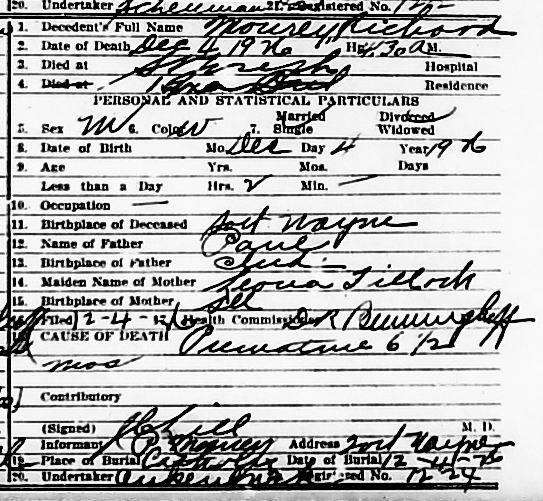 20. Undertaker Registered No.
1. Decedent's Full Name Mourey Richard
2. Date of Death Dec 4 1926 Hr 4.30 A M.
3. Died at St Joseph Hospital
4. Died at Residence
PERSONAL AND STATISTICAL PARTICULARS
5. Sex M 6. Color W 7. Married Single Divorced Widowed
8. Date of Birth Mo. Dec Day 4 Year 1926
9. Age Yrs. Mos. Days
Less than a Day Hrs. 2 Min. —
10. Occupation —
11. Birthplace of Deceased Fort Wayne
12. Name of Father Paul
13. Birthplace of Father Ind
14. Maiden Name of Mother Leona Tillock
15. Birthplace of Mother Ill
16. Filed 12-4- Health Commissioner
17. CAUSE OF DEATH Premature 6 1/2
mos
Contributory
(Signed) M. D.
Informant P. Mourey Address Fort Wayne
19. Place of Burial Catholic Date of Burial 12-4-26
20. Undertaker Registered No. 1224